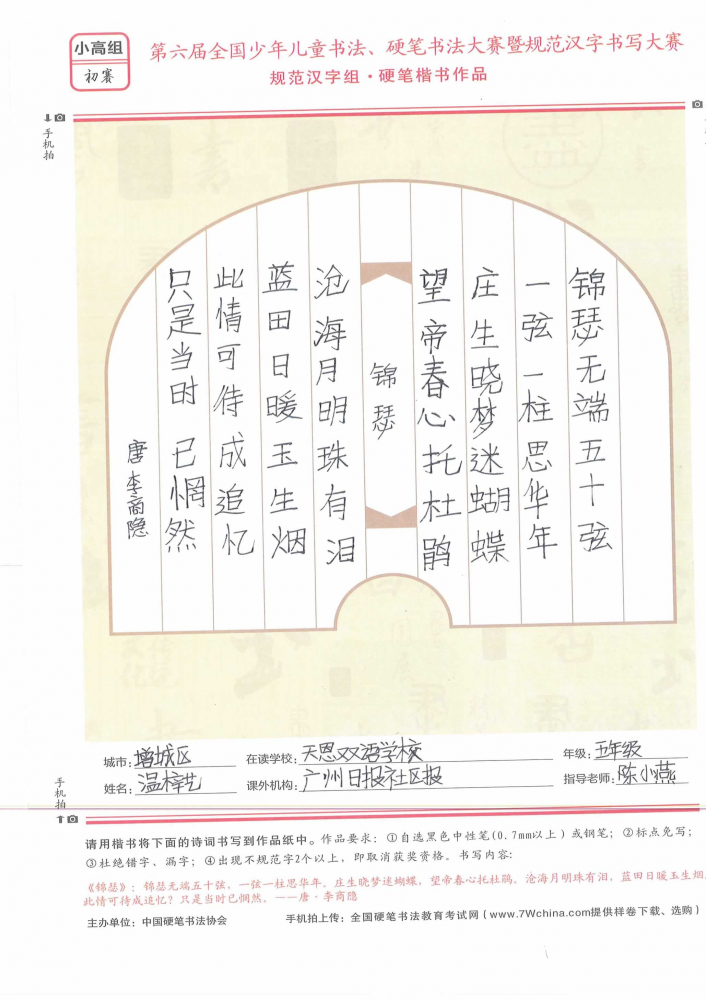 小高组
初赛
第六届全国少年儿童书法、硬笔书法大赛暨规范汉字书写大赛
规范汉字组·硬笔楷书作品
手机拍
锦瑟无端五十弦
一弦一柱思华年
庄生晓梦迷蝴蝶
望帝春心托杜鹃
锦瑟
沧海月明珠有泪
蓝田日暖玉生烟
此情可待成追忆
只是当时已惘然
唐 李商隐
城市:增城区 在读学校:天恩双语学校 年级:五年级
姓名:温梓艺 课外机构:广州日报社区报 指导老师:陈小燕
手机拍
请用楷书将下面的诗词书写到作品纸中。作品要求:①自选黑色中性笔(0.7mm以上)或钢笔;②标点免写;
③杜绝错字、漏字;④出现不规范字2个以上,即取消获奖资格。书写内容:
《锦瑟》:锦瑟无端五十弦,一弦一柱思华年。庄生晓梦迷蝴蝶,望帝春心托杜鹃。沧海月明珠有泪,蓝田日暖玉生烟。
此情可待成追忆?只是当时已惘然。——唐·李商隐
主办单位:中国硬笔书法协会 手机拍上传:全国硬笔书法教育考试网(www.7Wchina.com提供样卷下载、选购)